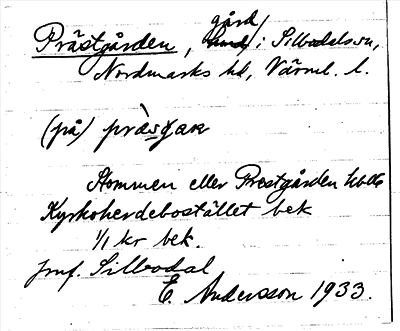 gård
Prästgården, i Silbodals sn,
Nordmarks hd, Värml. l.
(på) pràsgar
Stommen eller Prestgården
Kyrkoherdebostället bek
1/1 kr bek.
jmf. Silbodal
E. Andersson 1933.